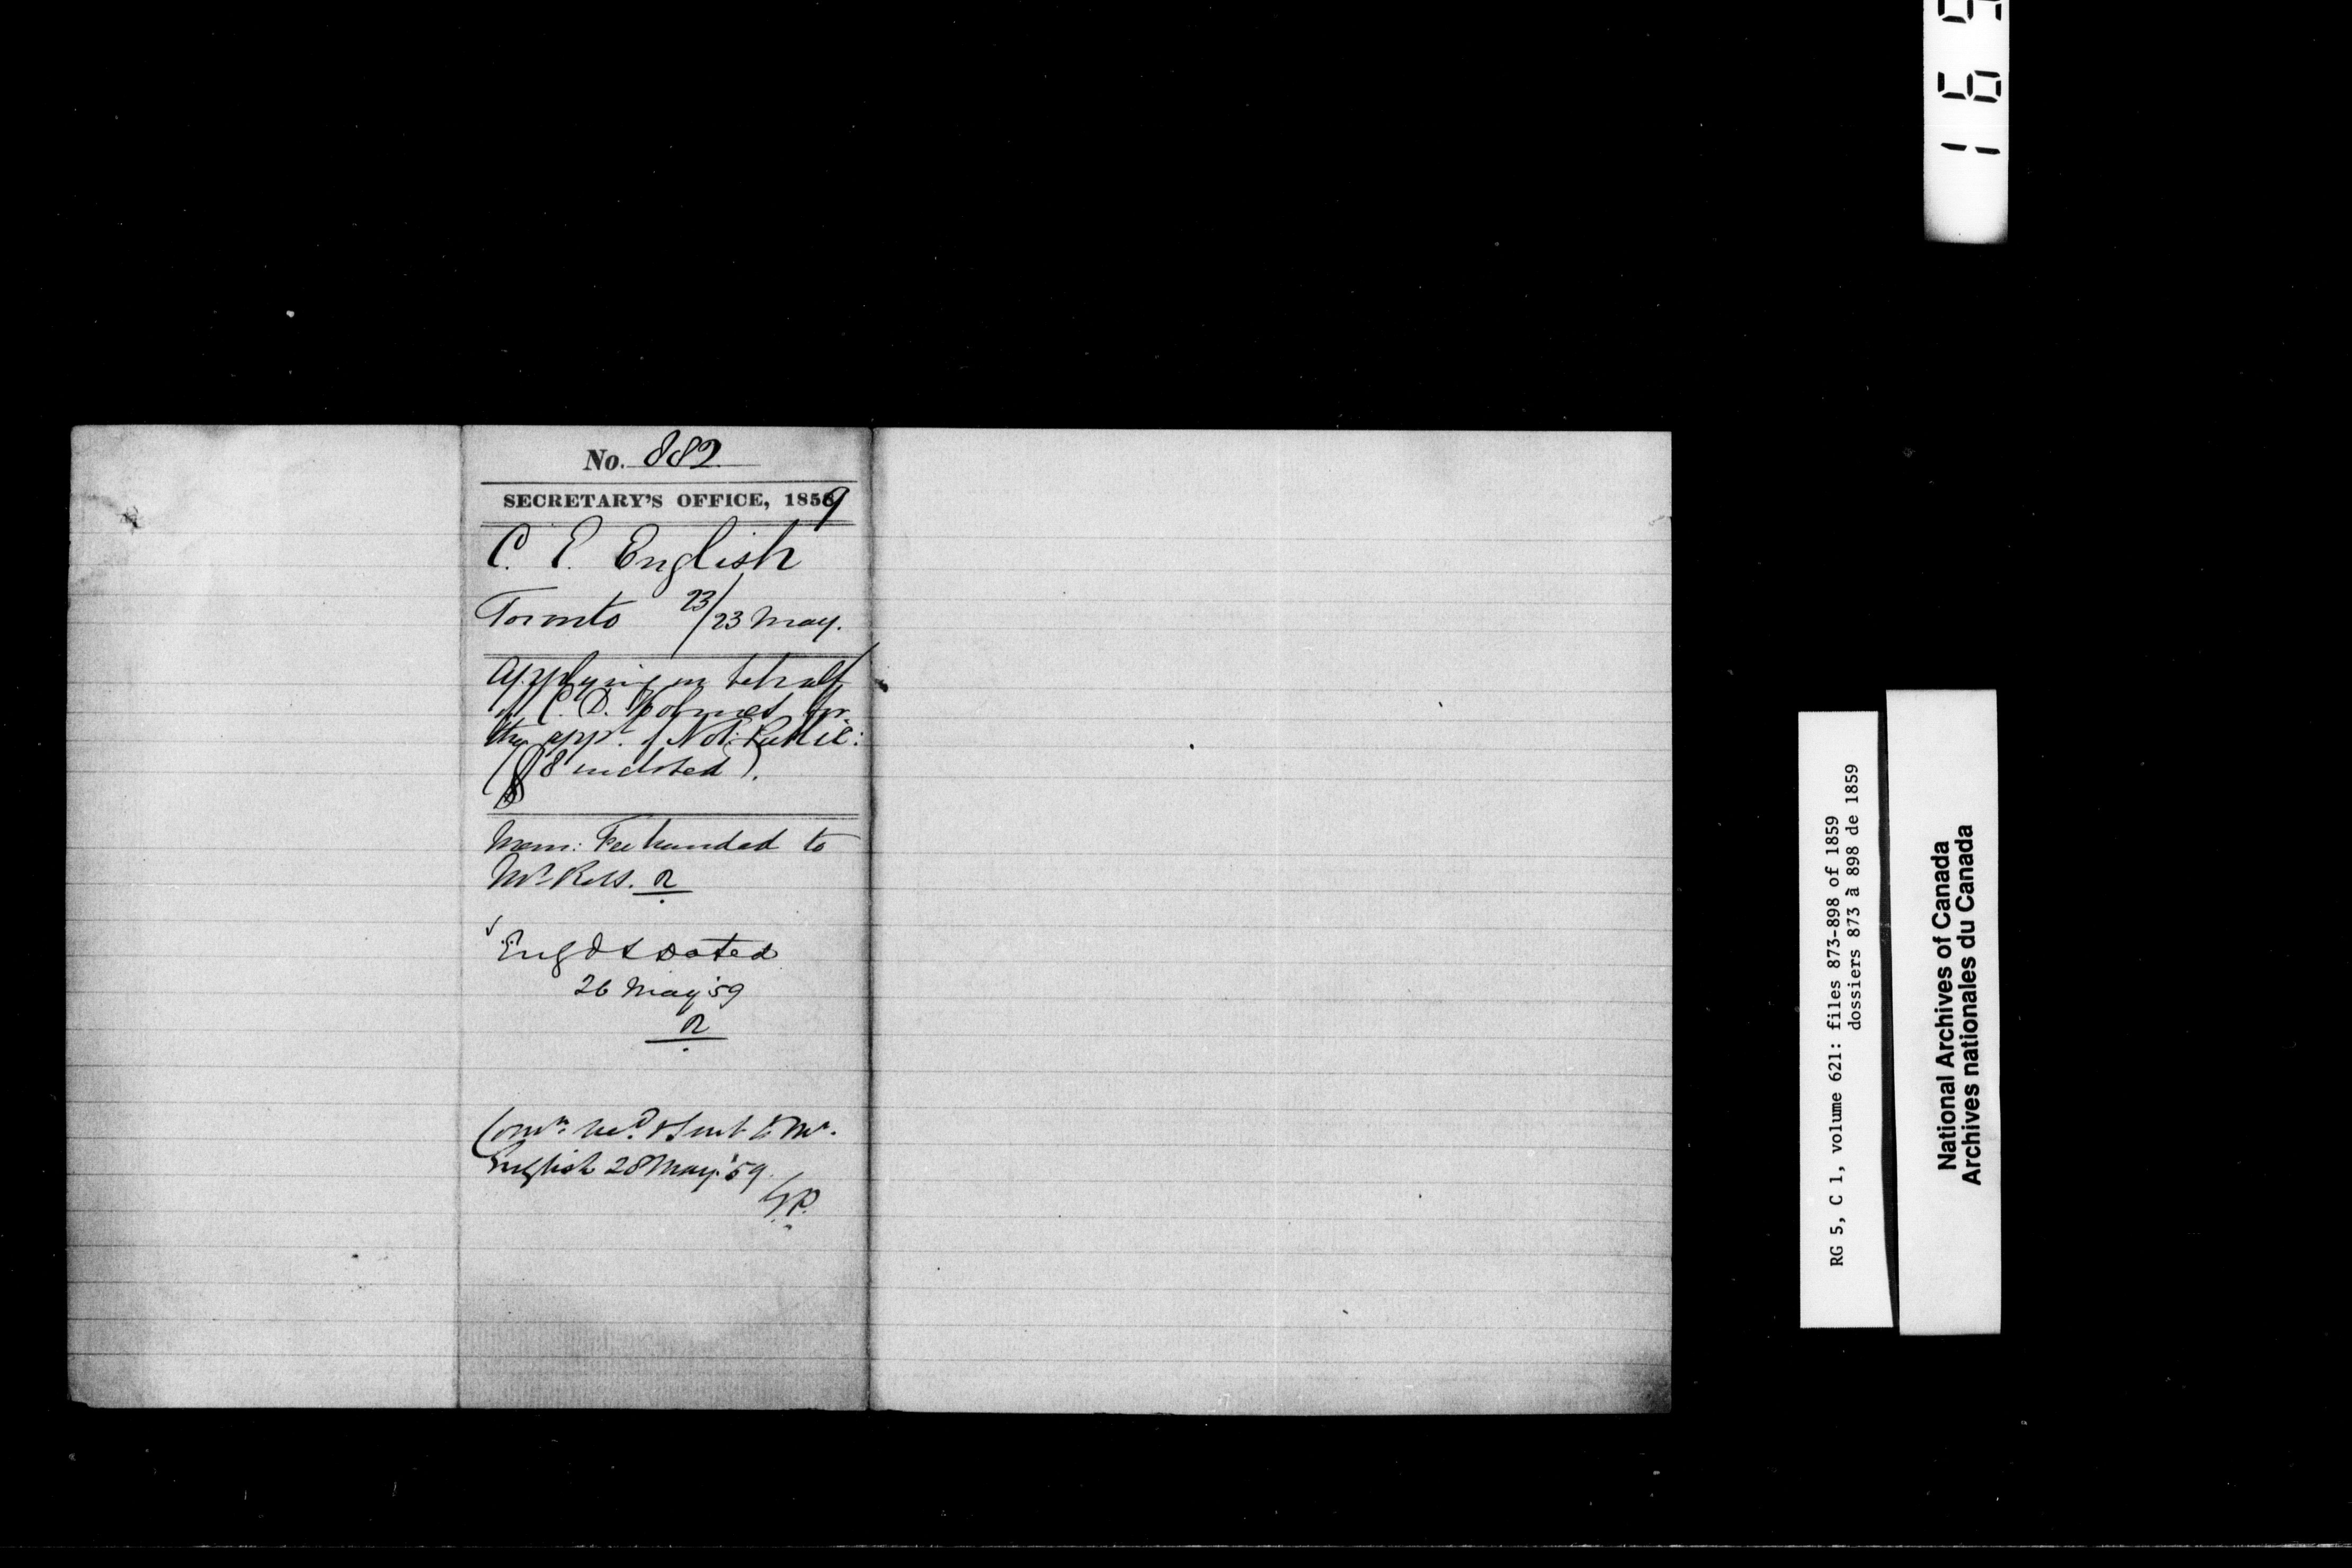 No. 882
SECRETARY'S OFFICE, 1859
C. E. English
Toronto 23/23 May.
Applying on behalf
of C. D. Holmes for
the appt. of Not: Public:
($8 inclosed).
Mem: Fee handed to
Mr Ross. R
Engd & Dated
26 May '59
R
Comn. recd. & sent to Mr.
English 28 May '59.
G.P.
169
RG 5, C 1, volume 621: files 873-898 of 1859
dossiers 873 à 898 de 1859
National Archives of Canada
Archives nationales du Canada